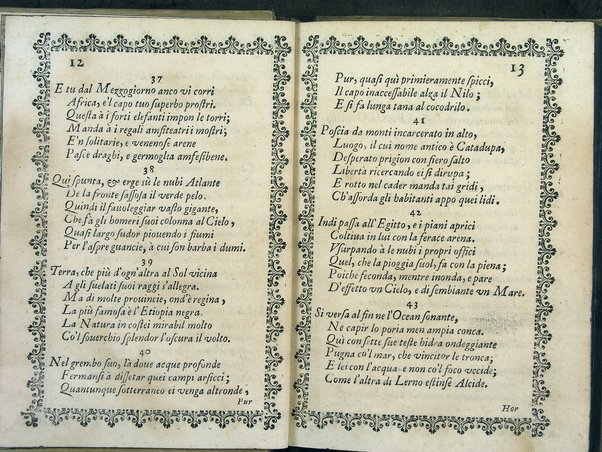 12
37
E tu dal Mezzogiorno anco vi corri
Africa, e'l capo tuo superbo prostri.
Questa à i forti elefanti impon le torri;
Manda à i regali amfiteatri i mostri;
E'n solitarie, e venenose arene
Pasce draghi, e germoglia amfesibene.
38
Qui spunta, & erge sù le nubi Atlante
De la fronte sassosa il verde pelo.
Quindi il fauoleggiar vasto gigante,
Che fà gli homeri suoi colonna al Cielo,
Quasi largo sudor piouendo i fiumi
Per l'aspre guancie, à cui son barba i dumi.
39
Terra, che più d'ogn'altra al Sol vicina
A gli suelati suoi raggi s'allegra.
Ma di molte prouincie, ond'è regina,
La più famosa è l'Etiopia negra.
La Natura in costei mirabil molto
Co'l souerchio splendor l'oscura il volto.
40
Nel grembo suo, là doue acque profonde
Fermansi à dissetar quei campi arsicci;
Quantunque sotterraneo ei venga altronde,
Pur
13
Pur, quasi quì primieramente spicci,
Il capo inaccessabile alza il Nilo;
E si fa lunga tana al cocodrilo.
41
Poscia da monti incarcerato in alto,
Luogo, il cui nome antico è Catadupa,
Desperato prigion con fiero salto
Libertà ricercando ei si dirupa;
E rotto nel cader manda tai gridi,
Ch'assorda gli habitanti appo quei lidi.
42
Indi passa all'Egitto, e i piani aprici
Coltiua in lui con la ferace arena.
Vsurpando à le nubi i propri offici
Quel, che la pioggia suol, fa con la piena;
Poiche feconda, mentre inonda, e pare
D'effetto vn Cielo, e di sembiante vn Mare.
43
Si versa al fin ne l'Ocean sonante,
Ne capir lo poria men ampia conca.
Quì con sette sue teste hidra ondeggiante
Pugna co'l mar, che vincitor le tronca;
E lei con l'acqua e non co'l foco vccide;
Come l'altra di Lerno estinse Alcide.
Hor